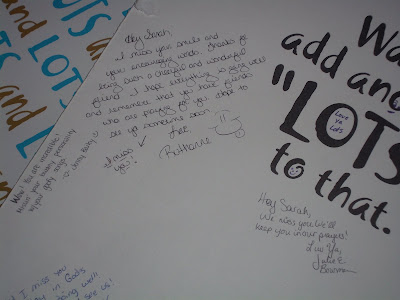 Hey Sarah,
I miss your smile and
you encouraging words. Thanks for
being such a cheerful and wonderful
friend. I hope everything is going well
and remember that you have friends
who are praying for you. Hope to
see ya someone soon
Love
Ruthanne
I miss
ya!!
Wow! You are incredible!
your bubbly personality
add and
"LOTS
Love Ya
Lots
to that.
Hey Sarah,
We miss you. We'll
keep you in our prayers!
Luv Ya,
Julie E.
Bowman
LOTS
and LOTS
and LOTS
and
I miss you
in God's
doing well
see us!